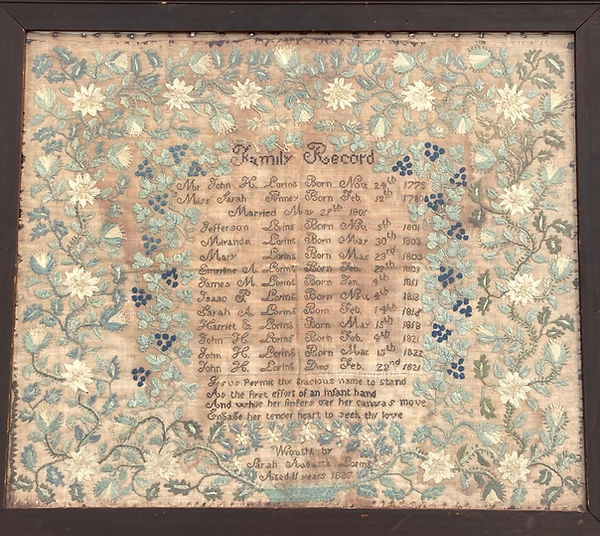 Family Record
Mr John H. Loring Born Nov. 24th 1775
Miss Sarah Penney Born Feb. 12th 1780
Married May 28th 1801
Jefferson Loring Born Nov. 5th 1801
Miranda Loring Born May 30th 1803
Mary Loring Born Mar 23rd 1805
Emerline A. Loring Born Feb. 22nd
James M. Loring Born Jan. 4th 1811
Isaac P. Loring Born Nov. 4th 1813
Sarah A. Loring Born Feb. 14th 1816
Harriet E. Loring Born May 15th 1818
John H. Loring Born Feb. 4th 1821
John H. Loring Born Mar 15th 1822
John H. Loring Died Feb. 22nd 1821
Jesus Permit thy Gracious name to stand
As the first effort of an infant hand
And while her fingers oar her canvas move
Engage her tender heart to seek thy love
Wrought by
Sarah Augusta Loring
Aged 11 years 1827